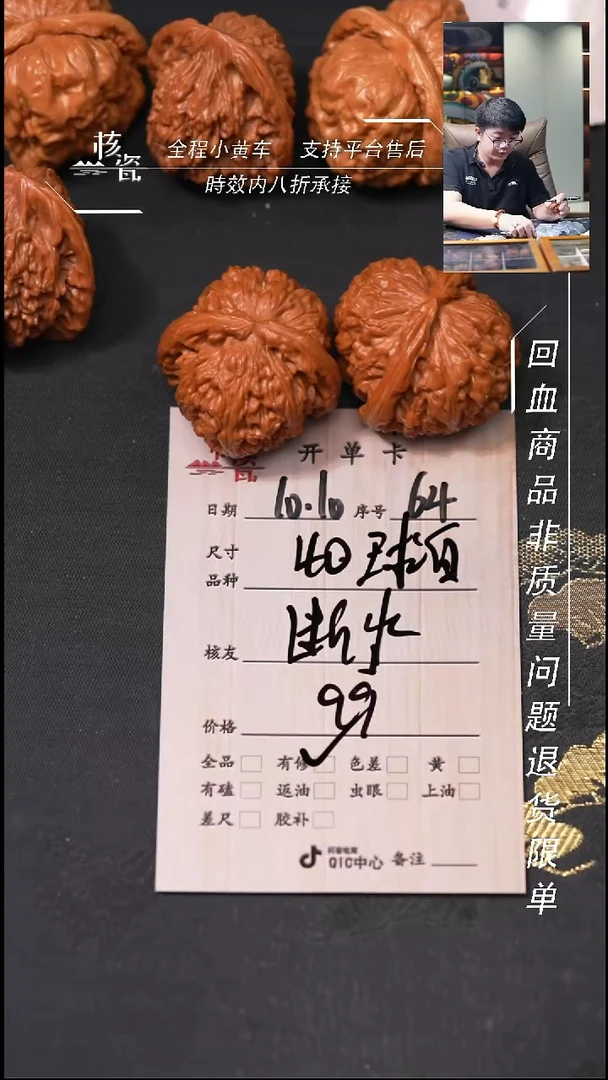 核瓷
全程小黄车 支持平台售后
時效内八折承接
回血商品非质量问题退货限单
开单卡
日期 10.10 序号 64
尺寸
品种 40球
核友
价格 99
全品 有修 色差 黄
有磕 返油 虫眼 上油
差尺 胶补
抖音电商
QIC中心 备注